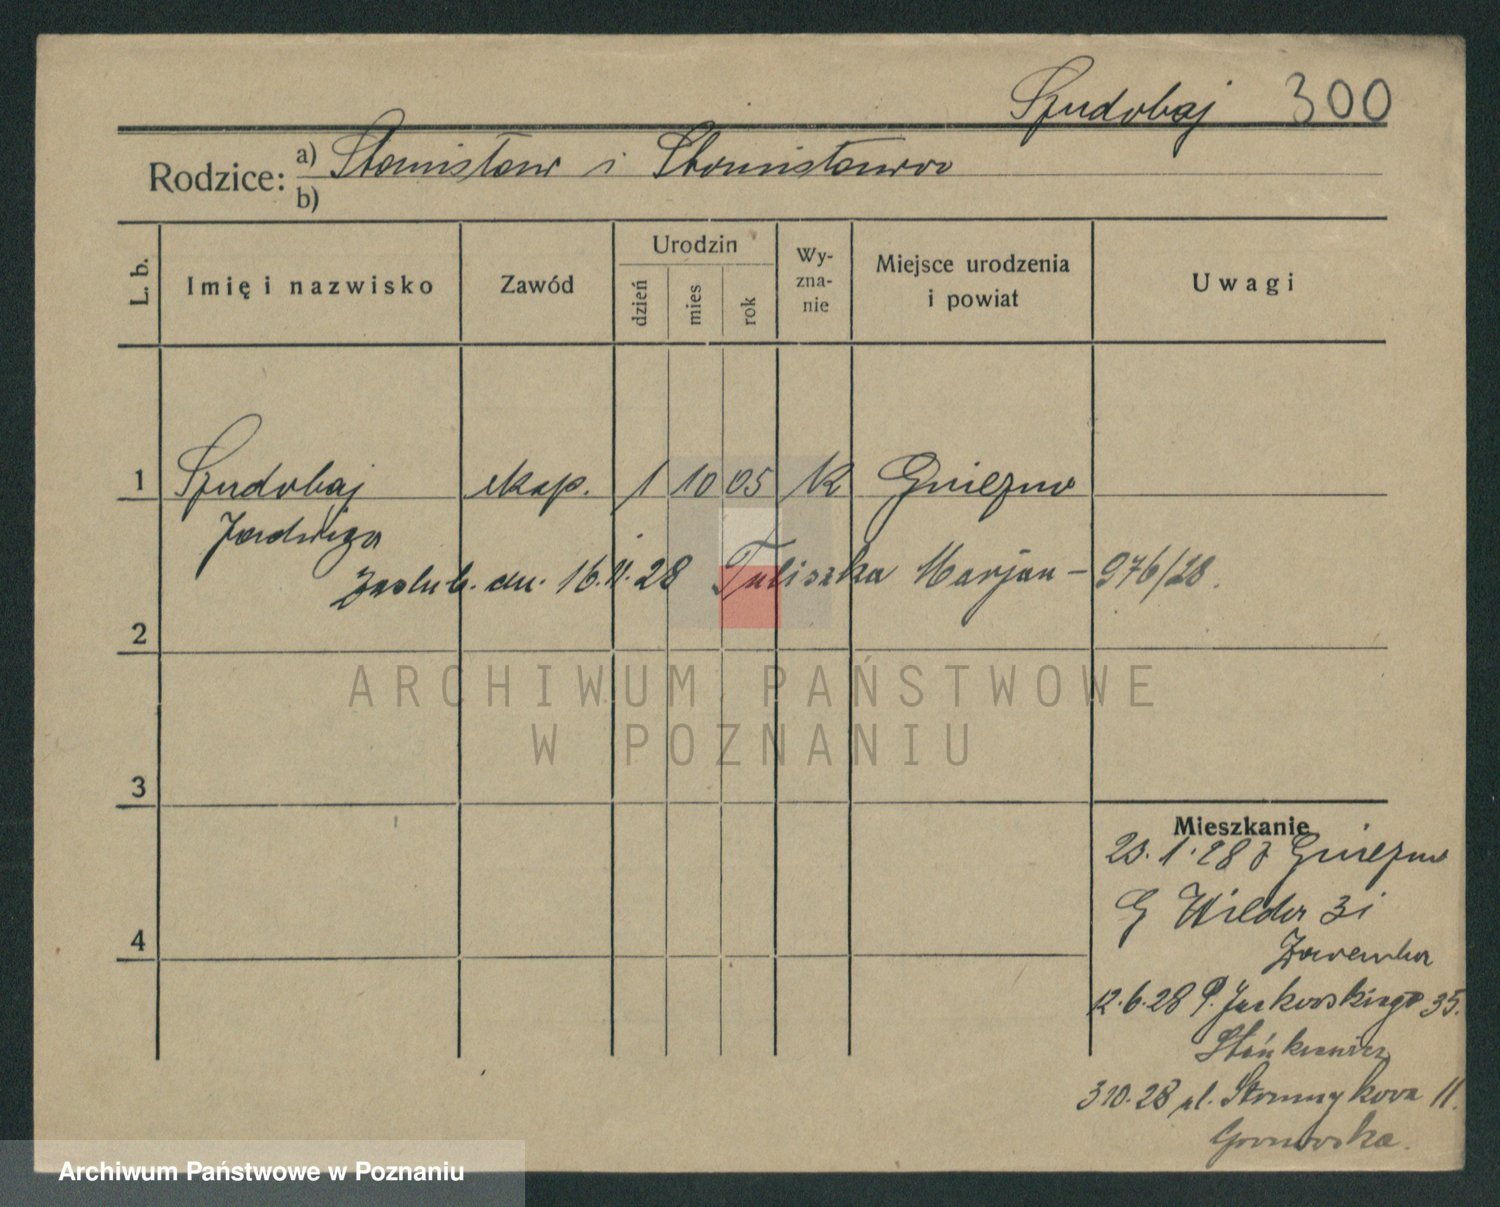 Szudobaj 300
Rodzice: a) Stanisław i Stanisława
b)
L. b.
Imię i nazwisko
Zawód
Urodzin
dzień
mies
rok
Wy-
zna-
nie
Miejsce urodzenia
i powiat
Uwagi
1 Szudobaj eksp. 1 10 05 K Gniezno
Jadwiga
zaślub. dn. 16.11.28 Tuliszka Marjan - 976/28.
2
ARCHIWUM PAŃSTWOWE
W POZNANIU
3
Mieszkanie
23.1.28 z Gniezno
G Wilda 31
Zaremba
4
12.6.28 P. Jackowskiego 35.
3 10.28 ul. Strumykowa 11.
Gronowska.
Archiwum Państwowe w Poznaniu